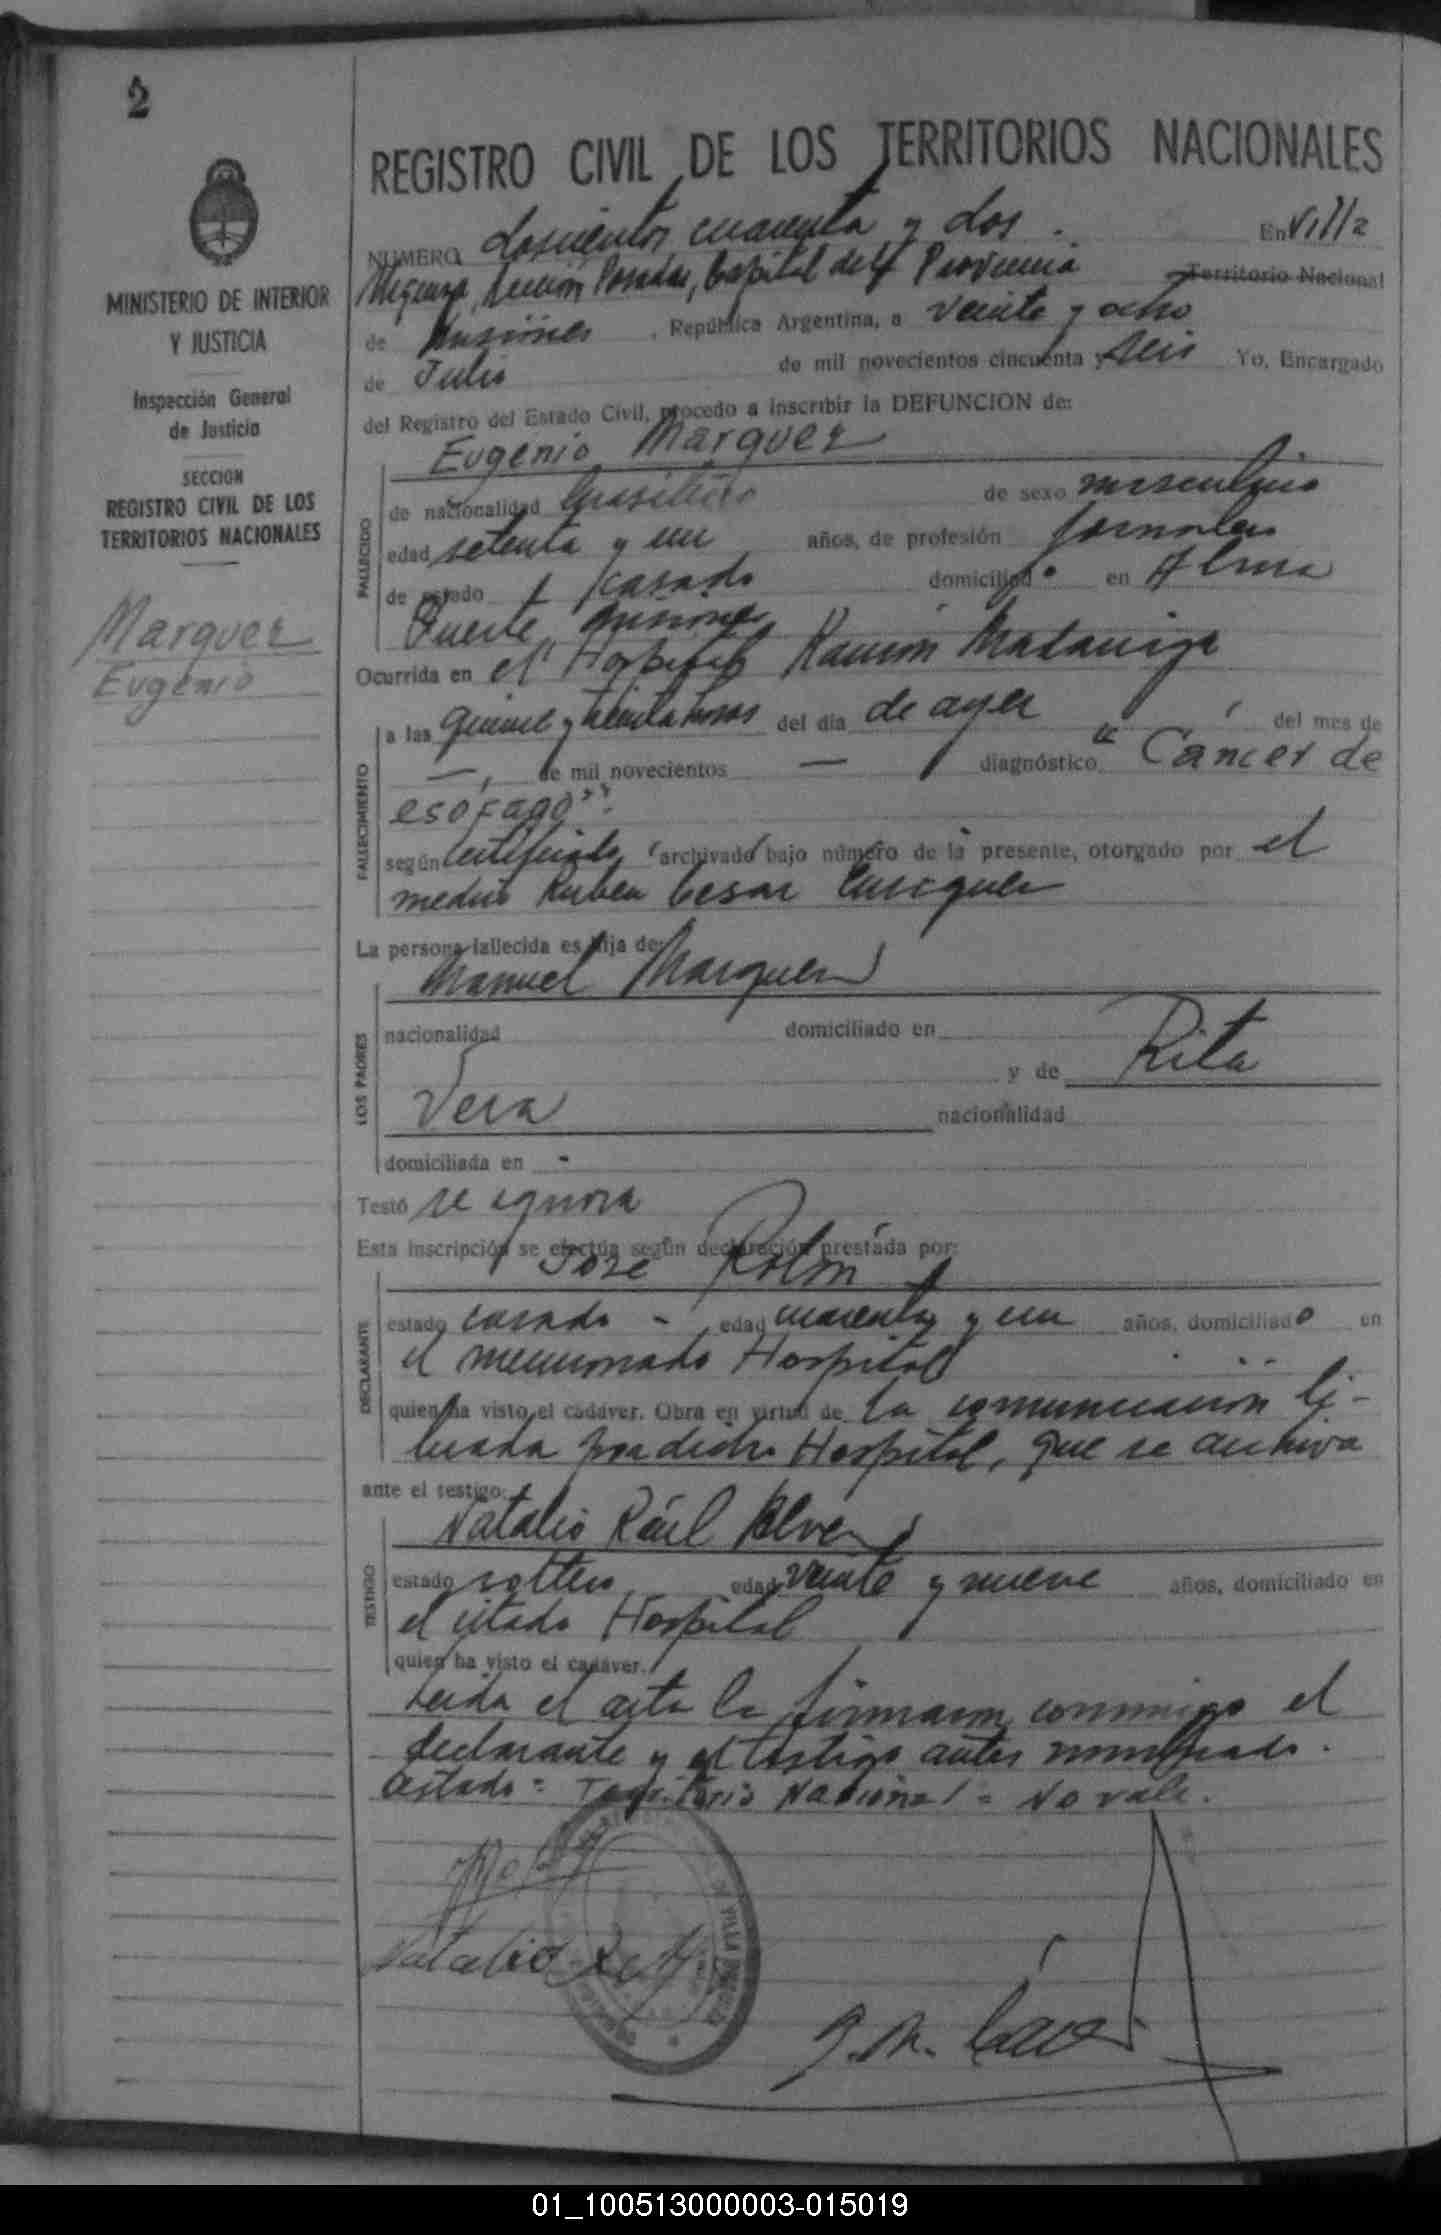 2
REGISTRO CIVIL DE LOS TERRITORIOS NACIONALES
MINISTERIO DE INTERIOR
Y JUSTICIA
Inspección General
de Justicia
SECCION
REGISTRO CIVIL DE LOS
TERRITORIOS NACIONALES
Marquez
Eugenio
NÚMERO doscientos cuarenta y dos. En Villa
Sección Posadas, Capital de la Provincia Territorio Nacional
de Misiones, República Argentina, a veinte y ocho
de Julio de mil novecientos cincuenta y seis Yo, Encargado
del Registro del Estado Civil, procedo a inscribir la DEFUNCION de:
Eugenio Marquez
FALLECIDO
de nacionalidad brasileño de sexo masculino
edad setenta y un años, de profesión jornalero
de estado casado domiciliado en Alma
Fuerte, Misiones
Ocurrida en el Hospital Ramón Madariaga
FALLECIMIENTO
a las quince y treinta horas del día de ayer del mes de
— de mil novecientos — diagnóstico "Cancer de
esófago".
según certificado archivado bajo número de la presente, otorgado por el
medico Ruben Cesar
La persona fallecida es hija de:
Manuel Marquez
LOS PADRES
nacionalidad domiciliado en
y de Rita
Vera nacionalidad
domiciliada en -
Testó se ignora
Esta inscripción se efectúa según declaración prestada por:
José Rolón
DECLARANTE
estado casado - edad cuarenta y un años, domiciliado en
el mencionado Hospital
quien ha visto el cadáver. Obra en virtud de la comunicación li-
brada por dicho Hospital, que se archiva
ante el testigo:
Natalio Raúl
TESTIGO
estado soltero edad veinte y nueve años, domiciliado en
el citado Hospital
quien ha visto el cadáver.
Leida el acta la firmaron conmigo el
declarante y el testigo antes nombrado.
Testado = Territorio Nacional = No vale.
Natalio
01_100513000003-015019